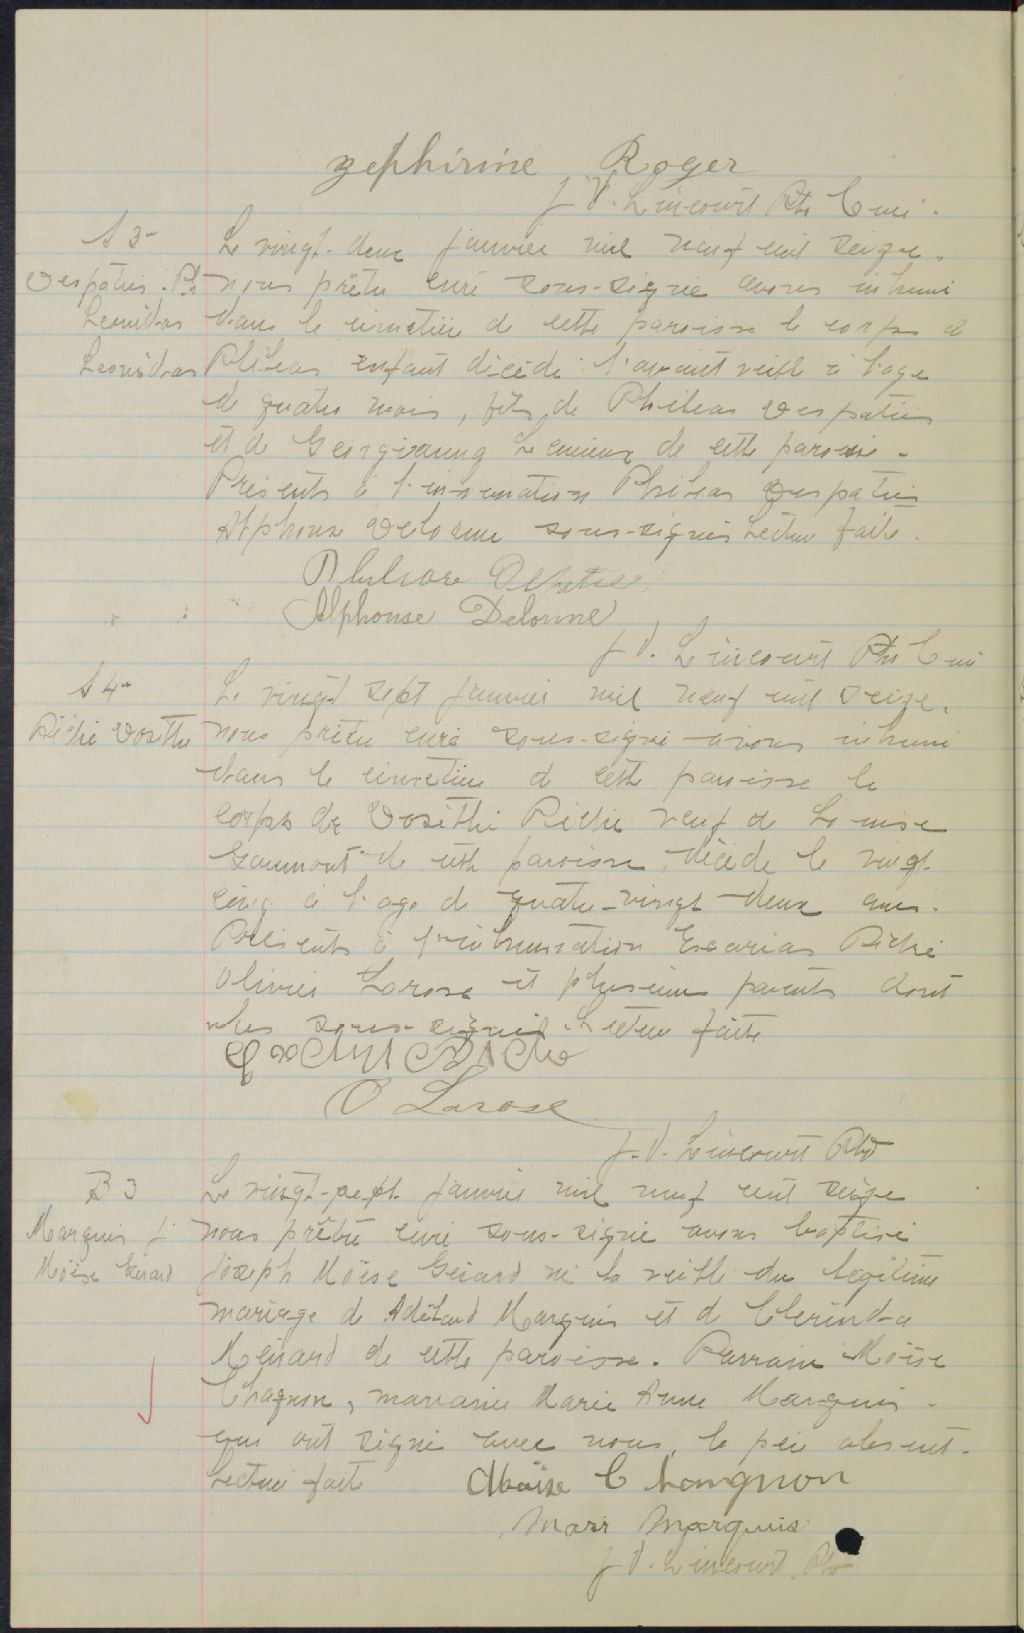 Zephirine Roger
J. V. Lincourt Ptre Curé.
S 3
Le vingt-deux janvier mil neuf cent seize,
Despatis. Ph.
nous prêtre curé sous-signé avons inhumé
Leonidas
dans le cimetière de cette paroisse le corps de
Leonidas
Philéas enfant décédé l'avant veille à l'age
de quatre mois, fils de Philéas Despatis
et de Georgianna Lemieux de cette paroisse.
Présents à l'inhumation Philéas Despatis
Alphonse Delorme sous-signés Lecture faite.
Alphonse Delorme
J. V. Lincourt Ptre Curé
S 4
Le vingt sept janvier mil neuf cent seize,
Riché Dosithé
nous prêtre curé sous-signé avons inhumé
dans le cimetière de cette paroisse le
corps de Dosithé Riché veuf de Louise
Gaumont de cette paroisse, décédé le vingt-
cinq à l'age de quatre-vingt-deux ans.
Présents à l'inhumation Riché
Olivier Larose et plusieurs parents dont
sous-signés. Lecture faite
O Larose
J. V. Lincourt Ptre
B 3
Le vingt-sept janvier mil neuf cent seize
Marquis J.
nous prêtre curé sous-signé avons baptisé
Moïse Gérard
Joseph Moïse Gérard né la veille du légitime
mariage de Adélard Marquis et de Clérinda
Ménard de cette paroisse. Parrain Moïse
Chagnon, marraine Marie Anne Marquis.
qui ont signé avec nous, le père absent.
Lecture faite
Moïse Changnon
Mary Marquis
J. V. Lincourt Ptre